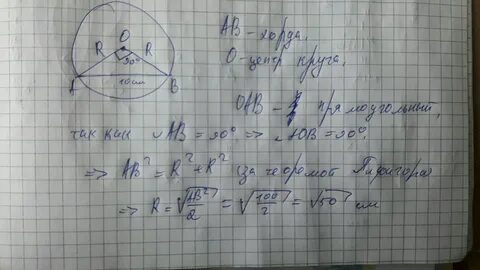 O
R R
90°
A 10 см B
AB - хорда.
O - центр круга.
OAB - прямоугольный,
так как ◡AB = 90° => ∠AOB = 90°.
=> AB² = R² + R² (за теоремой Пифагора)
=> R = √AB²/2 = √100/2 = √50 см